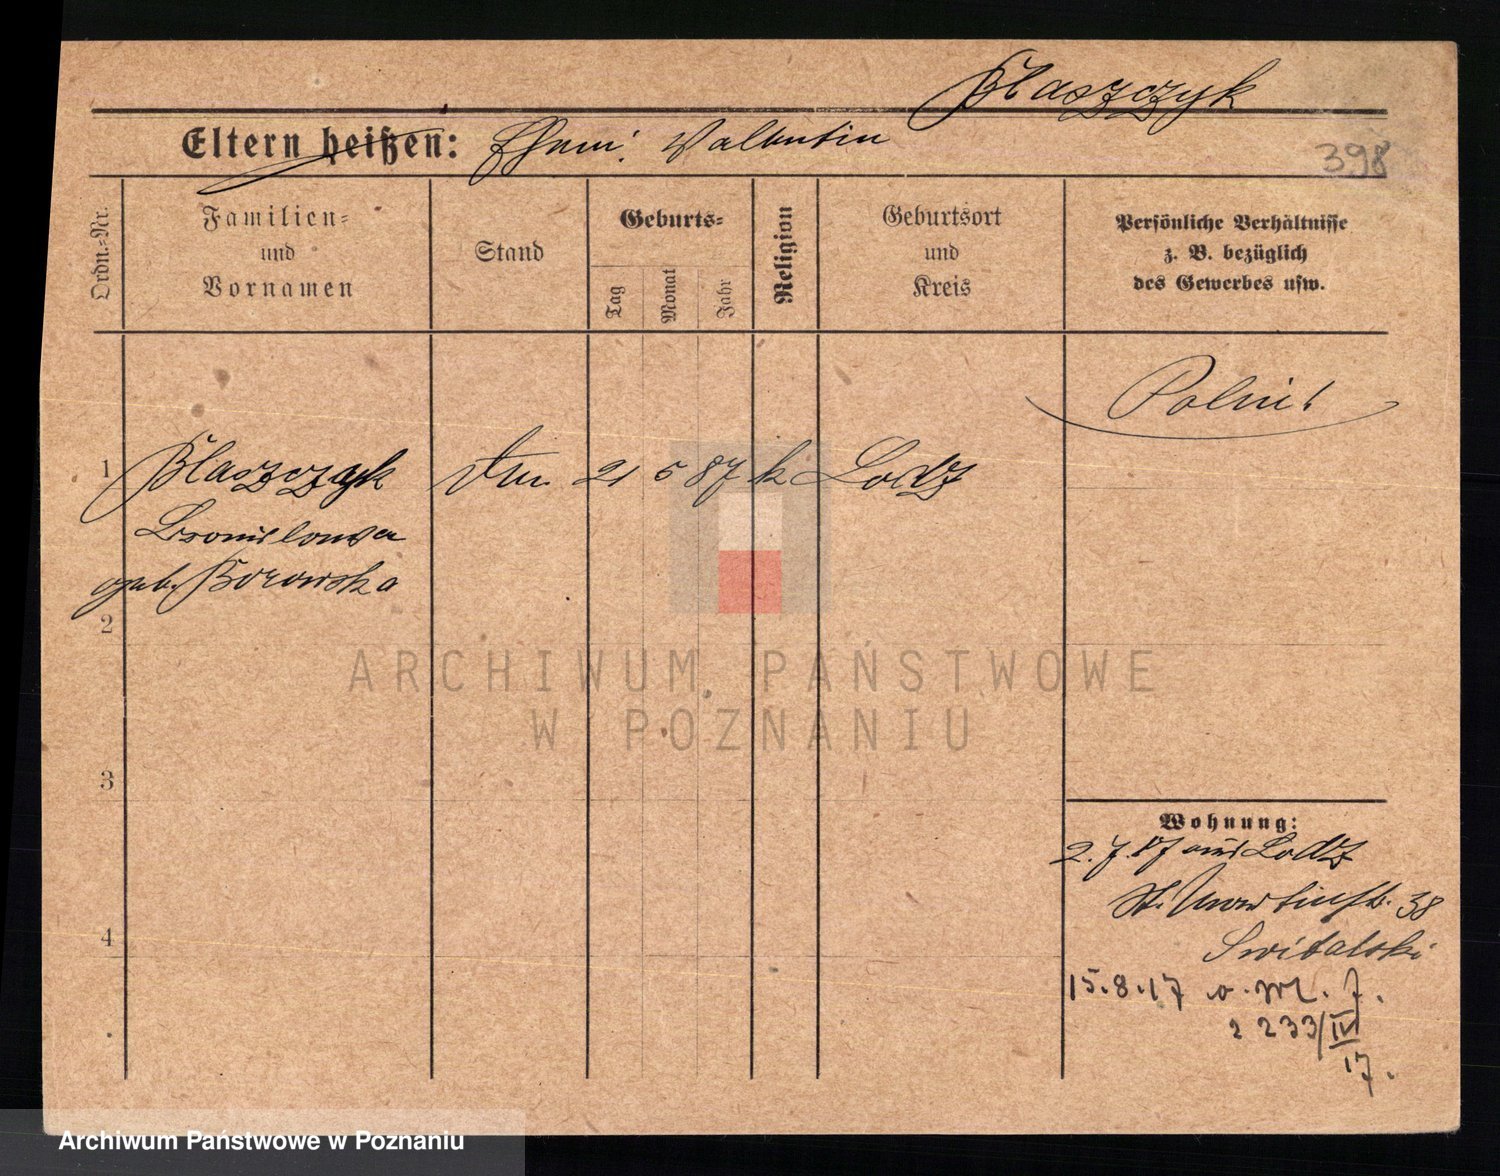 Blaszczyk
Eltern heißen: Ehem. Valentin
398
Ordn.-Nr.
Familien-
und
Vornamen
Stand
Geburts-
Tag
Monat
Jahr
Religion
Geburtsort
und
Kreis
Persönliche Verhältnisse
z. B. bezüglich
des Gewerbes usw.
Polin!
1 Blaszczyk 21 5 87 k Lodz
Bronislowa
geb. Borowska
2
3
4
Wohnung:
2. 7. 17 aus Lodz
St. Martinstr. 38
Switalski
15.8.17
2233/IV
17.
ARCHIWUM PAŃSTWOWE
W POZNANIU
Archiwum Państwowe w Poznaniu